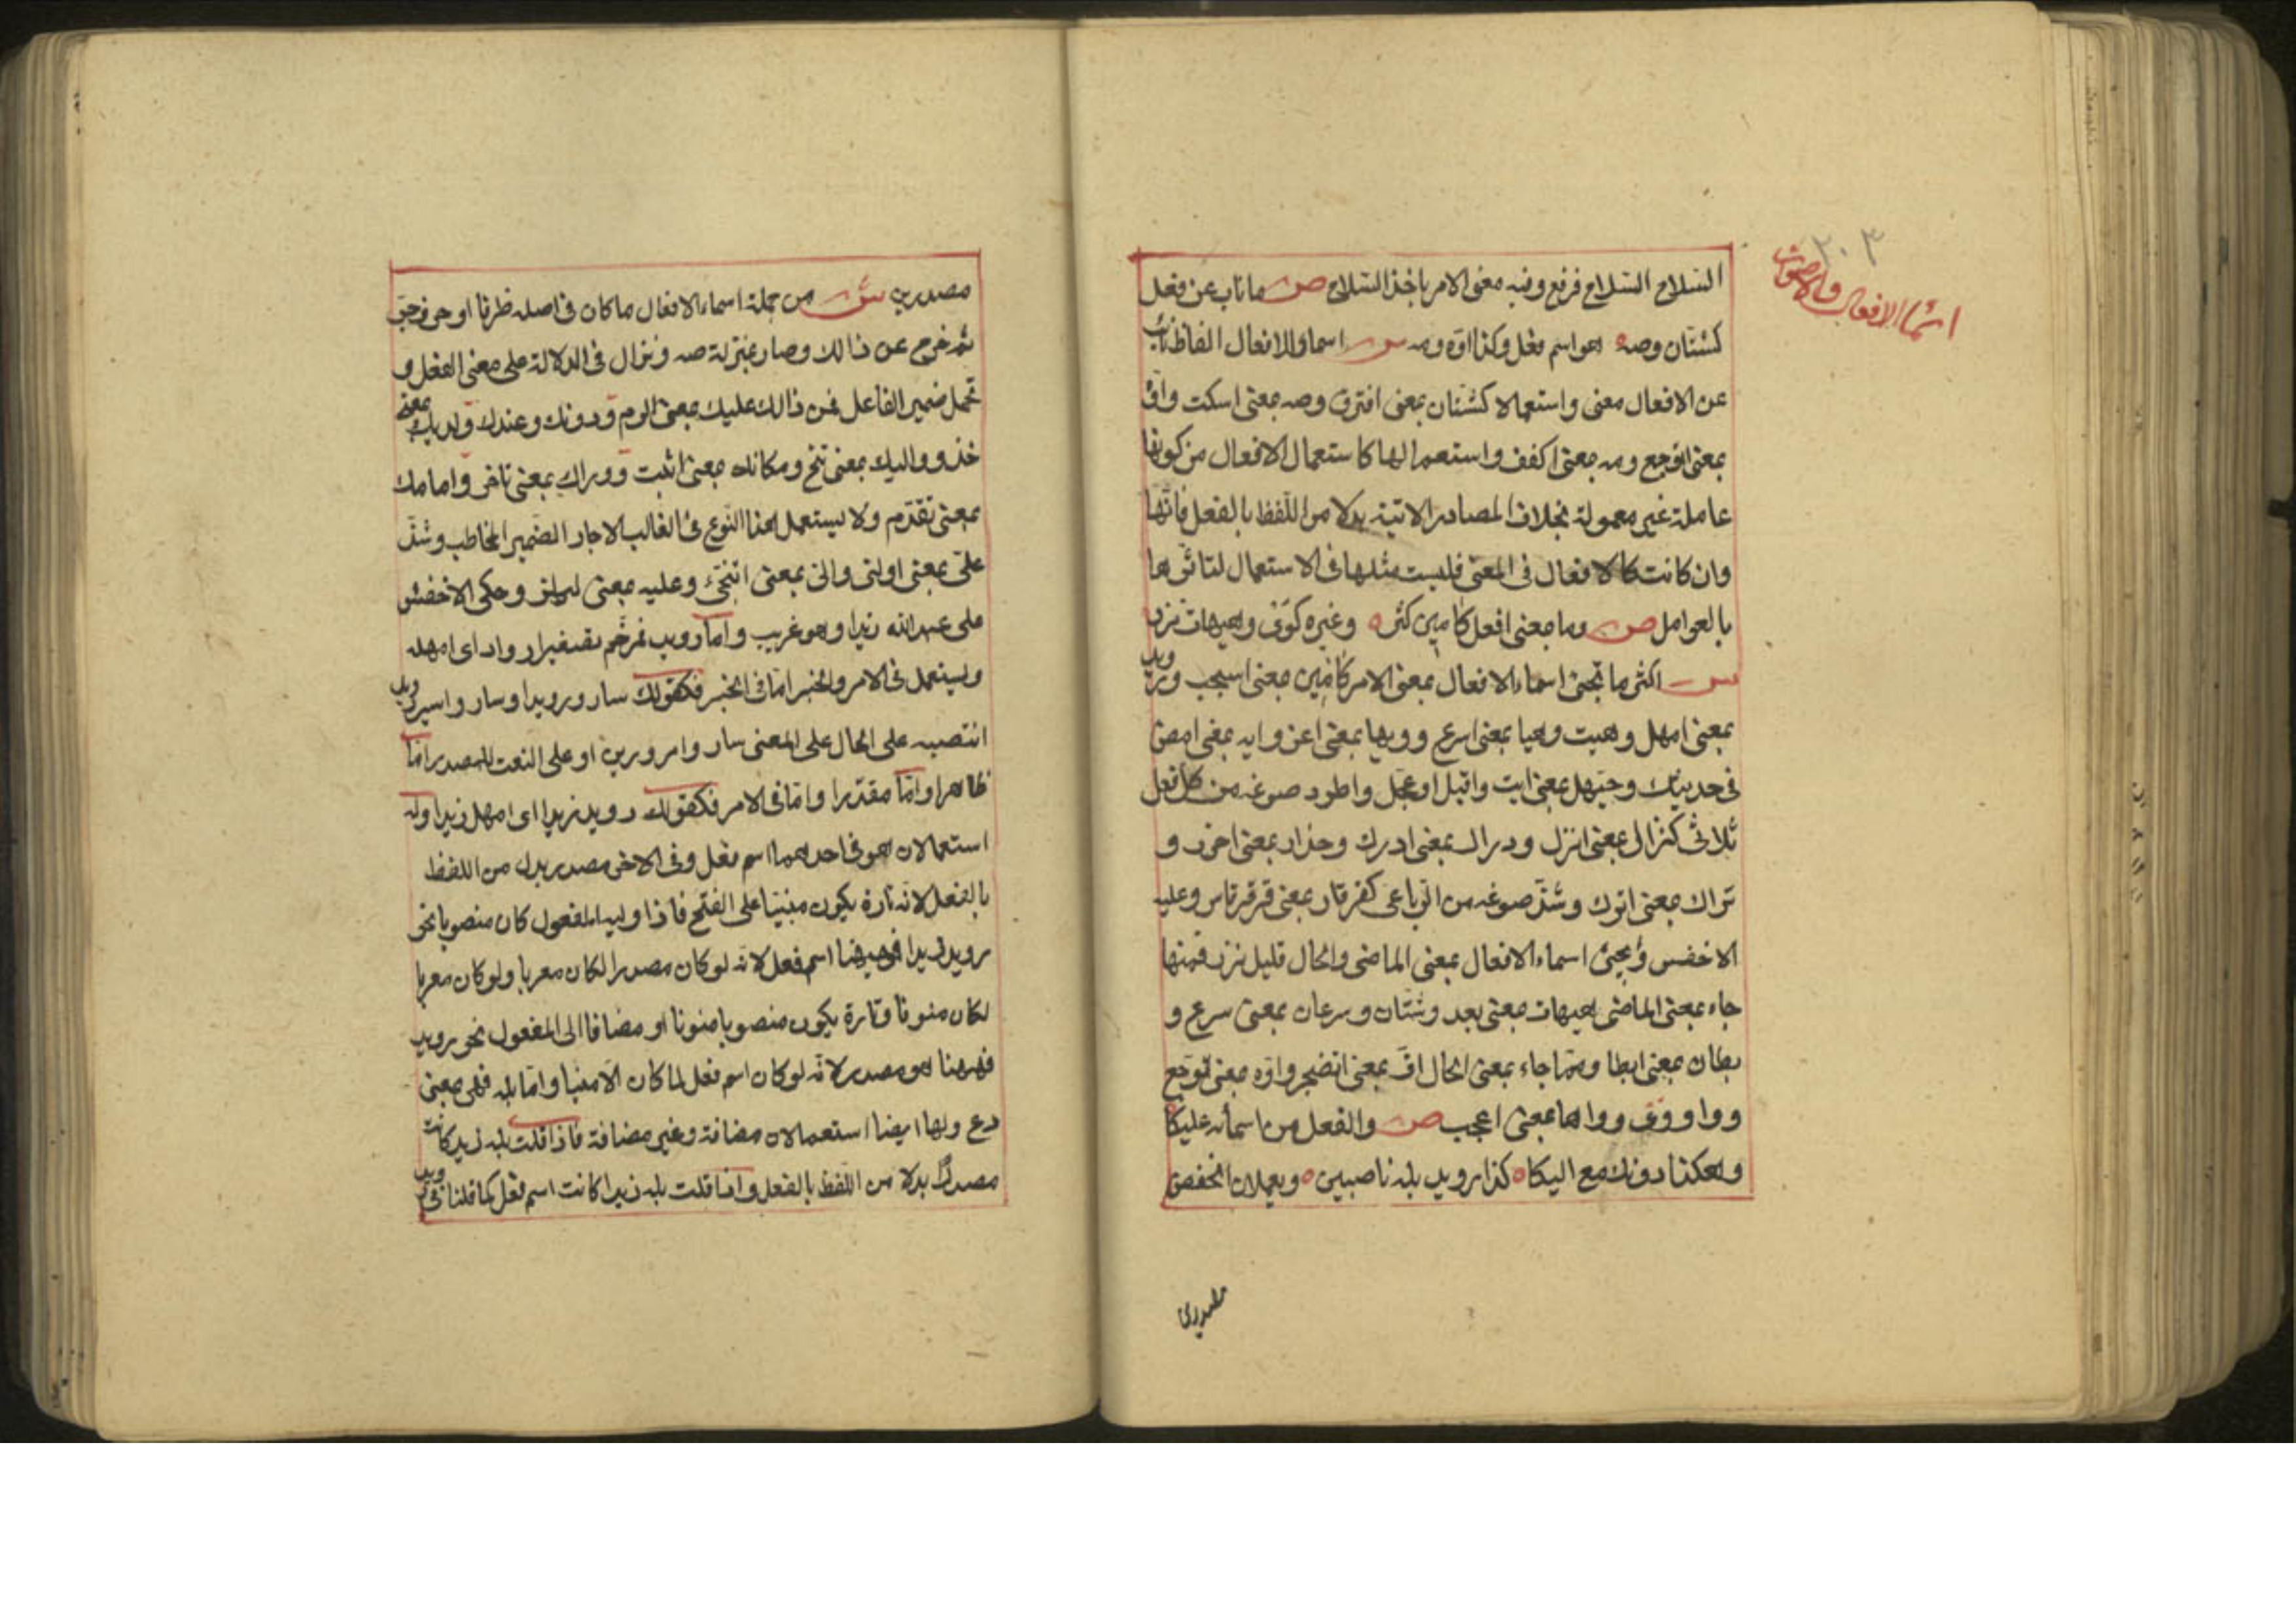 ٢٠٣
اسماء الافعال والاصوات
السّلاح السّلاح فرفع وفيه معنى الامر باخذ السّلاح ص ماناب عن فعل
كشتان وصه ه هو اسم فعل وكذا اوّه ومه س اسماء الافعال الفاظ نابت
عن الافعال معنى واستعمالا كشتّان بمعنى افترق وصه بمعنى اسكت واوّه
بمعنى اتوجع ومه بمعنى اكفف واستعمالها كاستعمال الافعال من كونها
عاملة غير معمولة بخلاف المصادر الاتية بدلا من اللّفظ بالفعل فانّها
وان كانت كالافعال فى المعنى فليست مثلها فى الاستعمال لتاثّرها
بالعوامل ص وما بمعنى افعل كامين كثر ه وغيره كوى وهيهات نزر
س اكثر ما تجئ اسماء الافعال بمعنى الامر كامين بمعنى استجب ورويد
بمعنى امهل وهيت وهيا بمعنى اسرع وويها بمعنى اغر وايه بمعنى امض
فى حديثك وحيّهل بمعنى ايت واقبل او عجّل واطرد صوغه من كل فعل
ثلاثى كنزال بمعنى انزل ودراك بمعنى ادرك وحذار بمعنى احذر و
تراك بمعنى اترك وشذّ صوغه من الرّباعى كقرقار بمعنى قرقر قاس وعليه
الاخفس ويجئ اسماء الافعال بمعنى الماضى والحال قليل نزر فمنها
جاء بمعنى الماضى هيهات بمعنى بعد وشتّان وسرعان بمعنى سرع و
بطان بمعنى ابطا وممّا جاء بمعنى الحال افّ بمعنى اتضجر واوّه بمعنى توجّع
ووا ووى وواها بمعنى اعجب ص والفعل من اسمائه عليكا
وهكذا دونك مع اليكا ه كذا رويد بله ناصبين ه ويعملان الخفض
مصدرين
مصدرين ش من جملة اسماء الافعال ماكان فى اصله ظرفا او حرف جرّ
ثم خرج عن ذالك وصار بمنزلة صه ونزال فى الدلالة على معنى الفعل و
تحمل ضمير الفاعل فمن ذالك عليك بمعنى الزم ودونك وعندك ولديك بمعنى
خذ وواليك بمعنى تنح ومكانك بمعنى اثبت ووراك بمعنى تاخر وامامك
بمعنى تقدّم ولا يستعمل هذا النّوع فى الغالب الا جار الضّمير المخاطب وشذّ
علىّ بمعنى اولنى والىّ بمعنى اتنحّى وعليه بمعنى ليلزم وحكى الاخفش
على عبد الله زيدا وهو غريب وامّا رويد فمرخّم تصغير ارواد اى امهله
ويستعمل فى الامر والخبر امّا فى الخبر فكقولك سار ورويدا وسار واسير رويدا
انتصبه على الحال على المعنى سار وامرورين او على النعت للمصدر امّا
ظاهرا وامّا مقدّرا وامّا فى الامر فكقولك رويد زيدا اى امهل زيدا وله
استعمالان هو فى احدهما اسم فعل وفى الاخر مصدر بدل من اللفظ
بالفعل لانّه تارة يكون مبنيّا على الفتح فاذا وليه المفعول كان منصوبا نحو
رويد زيدا فهو هيهنا اسم فعل لانّه لو كان مصدرا لكان معربا ولو كان معربا
لكان منونا وتارة يكون منصوبا منونا او مضافا الى المفعول نحو رويد
فهيهنا هو مصدر لانّه لو كان اسم فعل لما كان الا مبنيا وامّا بله فهى بمعنى
دع ولها ايضا استعمالان مضافة وغير مضافة فاذا قلت بله زيد كانت
مصدرا بدلا من اللّفظ بالفعل واذا قلت بله زيدا كانت اسم فعل كما قلنا فى رويد